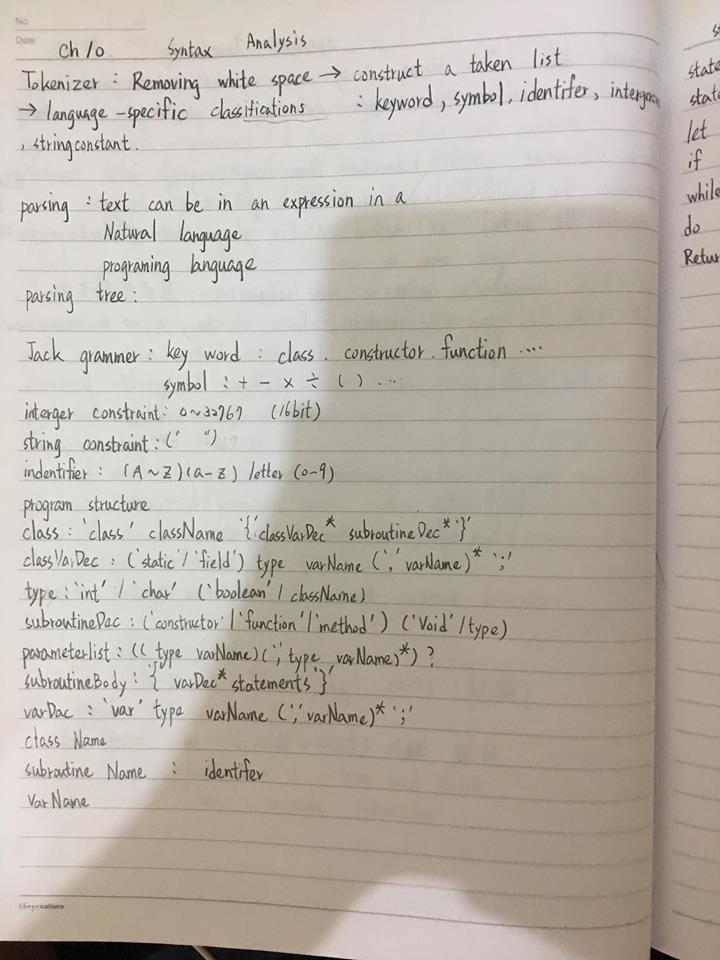 No.
Date
Ch 10 Syntax Analysis
Tokenizer : Removing white space → construct a taken list
→ language-specific classifications : keyword, symbol, identifer,
, stringconstant.
parsing : text can be in an expression in a
Natural language
programing language
parsing tree :
Jack grammer : key word : class . constructor . function ....
symbol : + - × ÷ ( ) ...
interger constraint : 0~32767 (16bit)
string constraint : (" ")
indentifier : (A~Z)(a-z) letter (0-9)
program structure
class : 'class' className '{' classVarDec* subroutineDec* '}'
classVarDec : ('static' / 'field') type varName (',' varName)* ';'
type : 'int' / 'char' ('boolean' / className)
subroutineDec : ('constructor' / 'function' / 'method') ('Void' / type)
parameterlist : (( type varName)(',' type varName)*) ?
subroutineBody : '{' varDec* statements '}'
varDac : 'var' type varName (',' varName)* ';'
class Name
subroutine Name : identifer
VarName
state
stat
let
if
while
do
Retur